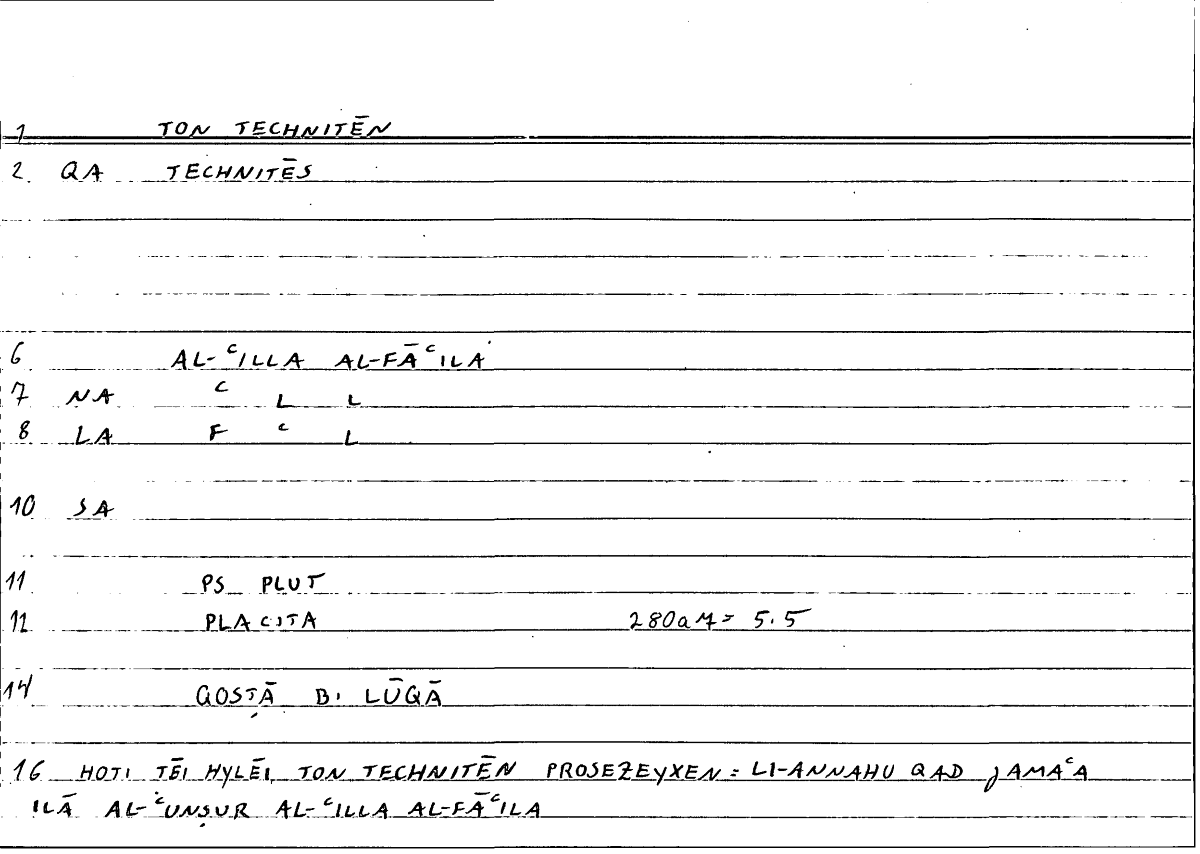 1 TON TECHNITĒN
2. QA TECHNITĒS
6 AL-ᶜILLA AL-FĀᶜILA
7 NA ᶜ L L
8 LA F ᶜ L
10 SA
11 PS PLUT
12 PLACITA 280a7= 5.5
14 QOSṬĀ B. LŪQĀ
16 HOTI TĒI HYLĒI TON TECHNITĒN PROSEZEYXEN = LI-ANNAHU QAD JAMAᶜA
ILĀ AL-ᶜUNṢUR AL-ᶜILLA AL-FĀᶜILA